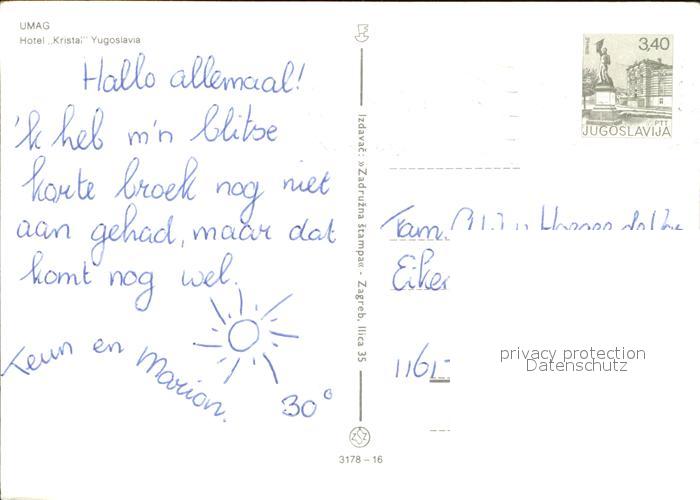 UMAG
Hotel „Kristal" Yugoslavia
Hallo allemaal!
'k heb m'n blitse
korte broek nog niet
aan gehad, maar dat
komt nog wel.
Teun en Marion.
30°
Izdavač: »Zadružna štampa« - Zagreb, Ilica 35
3178 – 16
3,40
PTT
JUGOSLAVIJA
Fam.
1161
privacy protection
Datenschutz